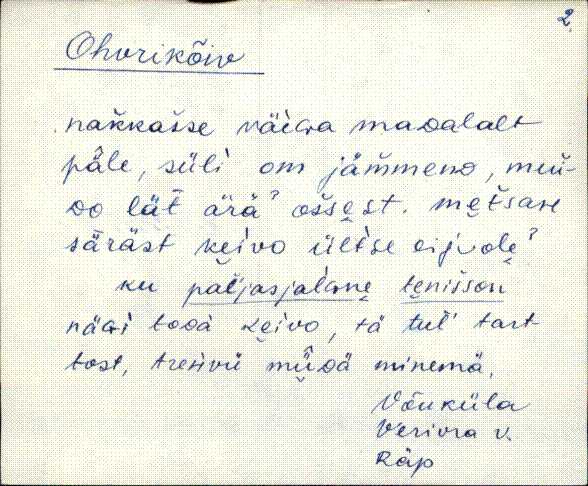 2.
Ohvrikõiv
nakkasse väiGa maDalalt
pǟle, süli om jämmeno, muì-
Do lät ärä? ošsest. mẹtsan
säräst kẹivo ültse eijvolẹ?
ku paljasjalGnẹ tẹnisson
näGi toDa kẹivo, tä tul' tart-
tost, treiivü müDä minemä.
Võuküla
Veriora v.
Räp